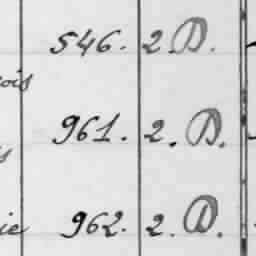 546. 2. D.
ois
961. 2. D.
s
ie 962. 2. D.